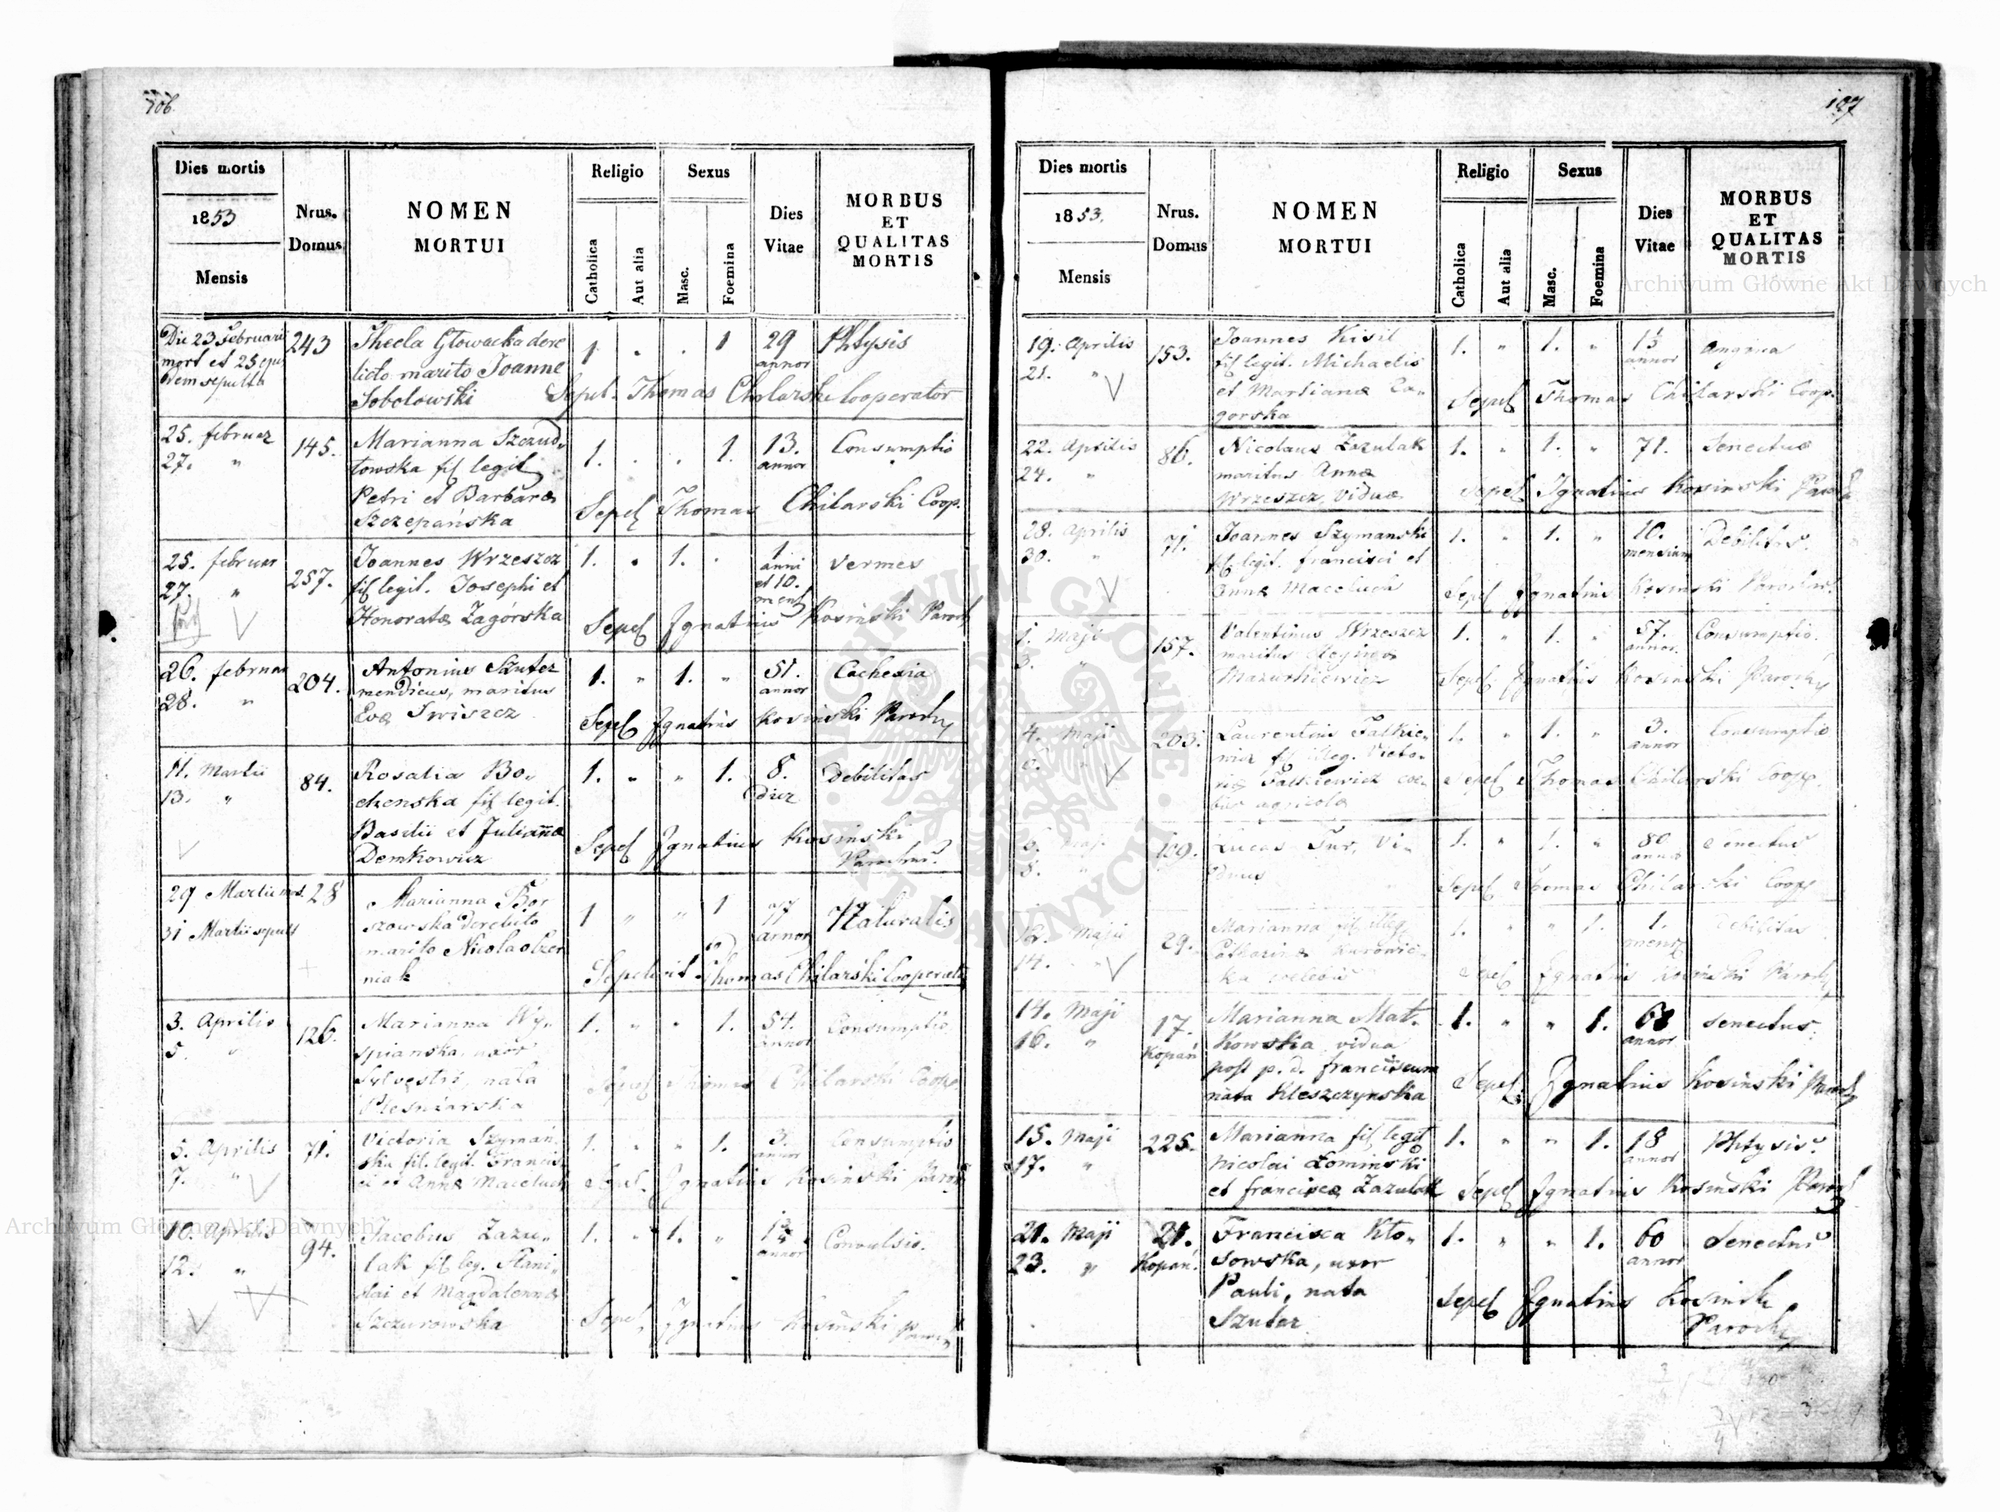 106.
Dies mortis
1853
Mensis
Nrus.
Domus
NOMEN
MORTUI
Religio
Catholica
Aut alia
Sexus
Masc.
Foemina
Dies
Vitae
MORBUS
ET
QUALITAS
MORTIS
Die 23 Februarii 243 Thecla Głowacka dere 1 . . 1 29 Phtysis
mort et 25 annor
sepulta licto marito Joanne
Sobolowski Sepel. Thomas Chilarski Cooperator
25. februar 145. Marianna Szczud- 1. . . 1. 13. Consumptio
27. " łowska fil legit annor
Petri et Barbarae
Szczepańska Sepel Thomas Chilarski Coop.
25. februar 257. Joannes Wrzeszcz 1. . 1. " 1 vermes
27. " fil legit. Josephi et anni
et 10.
Honoratae Zagórska mens
Sepel Ignatius Kosiński Paroch
26. februar 204. Antonius Szuter 1. " 1. " 51. Cachexia
28. " mendicus, maritus annor
Evae Iwiszcz Sepel Ignatius Kosiński Paroch
11. Martii 84. Rosalia Bo- 1. " " 1. 8. Debilitas
13. " chenska fil legit. dier
Basilii et Julianae Sepel Ignatius Kosinski
Demkowicz Parochus
29 Martii 28 Marianna Bor 1 " " 1 77 Naturalis
31 Martii sepult szowska derelicto annor
marito Nicolao
niak Sepelivit Thomas Chilarski Cooperator
3. Aprilis 126. Marianna Wy- 1. " " 1. 54. Consumptio
5. " spianska, uxor annor
Sylvestri, nata Sepel Thomas Chilarski Coop.
5. Aprilis 71. Victoria Szyman- 1. " " 1. 3. Consumptio
7. " ska fil. legit. Francis- annor
ci et Annae Maceluch Sepel. Ignatius Kosinski Paroch
10. Aprilis 94. Jacobus Zazu- 1. " 1. " Convulsio.
12. " lak fil leg. annor
et Magdalennae
Szczurowska Sepel, Ignatius Kosiński Paroch
107
Dies mortis
1853.
Mensis
Nrus.
Domus
NOMEN
MORTUI
Religio
Catholica
Aut alia
Sexus
Masc.
Foemina
Dies
Vitae
MORBUS
ET
QUALITAS
MORTIS
19. Aprilis 153. Joannes Kisil 1. " 1. " 15 Angina
21. " fil legit. Michaelis annor
et Marianae Za-
gorska Sepel Thomas Chilarski Coop.
22. Aprilis 86. Nicolaus Zazulak 1. " 1. " 71. Senectus
24. " maritus Annae
Wrzeszcz, viduae Sepel Ignatius Kosinski Paroch
28. Aprilis 71. Joannes Szymanski 1. " 1. " 10. Debilitas.
30. " fil legit. francisci et mensium
Annae Maceluch Sepel Ignatius Kosinski Parochus
1. Maji 157. Valentinus Wrzeszcz 1. " 1. " 57. Consumptio.
3. " maritus Reginae annor.
Mazurkiewicz Sepel Ignatius Kosinski Paroch
4. Maji 203. Laurentius Falkie- 1. " 1. " 3. Consumptio
6. " wicz fil illeg. Victo- annor
riae Falkiewicz
agricolae Sepel Thomas Chilarski Coop.
6. Maji 109. Lucas Tur, vi- 1. " 1. " 80 Senectus
8. " duus annor
Sepel Thomas Chilarski Coop
12. Maji 29. Marianna fil illeg 1. " " 1. 1. Debilitas
14. " Catharinae Kurowic- mens
ka Sepel Ignatius Kosiński Paroch
14. Maji 17. Marianna Mat- 1. " " 1. 68 Senectus.
16. " Kopań kowska, vidua annor
post p. d. franciscum
nata Kleszczynska Sepel Ignatius Kosinski Paroch
15. Maji 225. Marianna fil legit 1. " " 1. 18 Phtysis
17. " Nicolai Łominski annor
et franciscae Zazulak Sepel Ignatius Kosinski Paroch
21. Maji 21. Francisca Kło- 1. " " 1. 60 Senectus
23. " Kopań. sowska, uxor annor
Pauli, nata Sepel Ignatius Kosinski
Szuter Paroch
Archiwum Główne Akt Dawnych
Archiwum Główne Akt Dawnych
ARCHIWUM GŁÓWNE AKT DAWNYCH